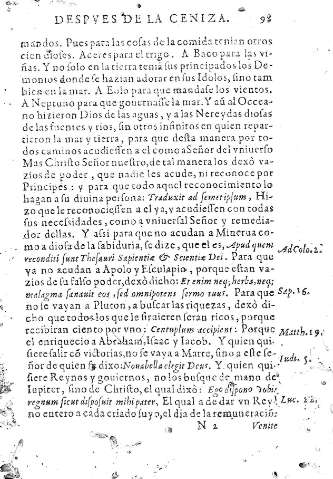 DESPVES DE LA CENIZA. 98
mandos. Pues para las cosas de la comida tenian otros
cien dioses. Aceres para el trigo. A Baco para las vi-
ñas. Y no solo en la tierra tenia sus principados los De-
monios donde se hazian adorar en sus Idolos, sino tam
bien en la mar. A Eolo para que mandase los vientos.
A Neptuno para que gouernasse la mar. Y aũ al Occea-
no hizieron Dios de las aguas, y a las Nereydas diosas
de las fuentes y rios, sin otros infinitos en quien repar-
tieron la mar y tierra, para que desta manera por to-
dos caminos acudiessen a el como a Señor del vniuerso
Mas Christo Señor nuestro, de tal manera los dexò va-
zios de poder, que nadie les acude, ni reconoce por
Principes: y para que todo aquel reconocimiento lo
hagan a su diuina persona: Traduxit ad semetipsum, Hi-
zo que le reconociessen a el ya, y acudiessen con todas
sus necessidades, como a vniuersal Señor y remedia-
dor dellas. Y assi para que no acudan a Minerua co-
mo a diosa de la sabiduria, se dize, que el es, Apud quem
reconditi sunt Thesauri Sapientiæ & Scientiæ Dei. Para que
ya no acudan a Apolo y Esculapio, porque estan va-
zios de su falso poder, dexò dicho: Et enim neq; herba, neq;
malagma sanauit eos, sed omnipotens sermo tuus. Para que
no se vayan a Pluton, a buscar las riquezas, dexò di-
cho que todos los que le siruieren seran ricos, porque
recibiran ciento por vno: Centuplum accipient: Porque
el enriquecio a Abraham, Isaac y Iacob. Y quien qui-
siere salir cõ victorias, no se vaya a Marte, sino a este se-
ñor de quien se dixo: Noua bella elegit Deus. Y quien qui-
siere Reynos y gouiernos, no los busque de mano de
Iupiter, sino de Christo, el qual dixò: Ego dispono vobis
regnum sicut disposuit mihi pater, El qual a de dar vn Rey
no entero a cada criado suyo, el dia de la remuneraciõ:
N 2 Venite
Ad Colo. 2.
Sap. 16.
Matth. 19.
Iudi. 5.
Luc. 22.